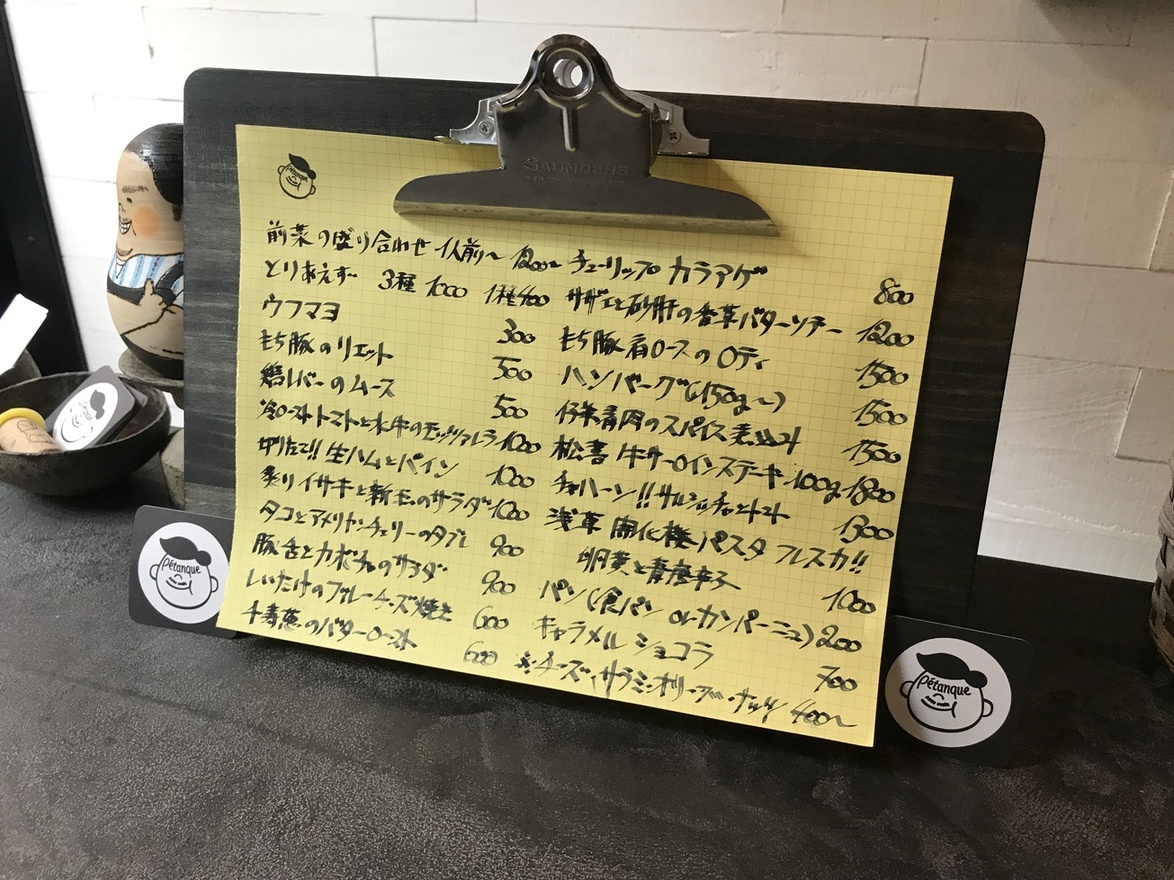 SAUNDERS
Pétanque
前菜の盛り合わせ 1人前〜 1200〜
とりあえず 3種 1000 1種400
ウフマヨ 300
もち豚のリエット 500
鶏レバーのムース 500
冷ローストトマトと水牛のモッツァレラ 1000
切りたて!! 生ハムとパイン 1000
炙りイサキと新玉のサラダ 1000
タコとアメリカンチェリーのタブレ 900
豚舌とカボチャのサラダ 900
しいたけのブルーチーズ焼き 600
千寿葱のバターロースト 600
チューリップカラアゲ 800
サザエと砂肝の香草バターソテー 1200
もち豚肩ロースのロティ 1500
ハンバーグ(150g〜) 1500
仔羊肩肉のスパイス煮込み 1500
牛サーロインステーキ 100g 1800
チャハーン!! サルシッチャとトマト 1300
浅草開化楼パスタフレスカ!!
卵黄と青唐辛子 1000
パン(食パン orカンパーニュ) 200
キャラメルショコラ 700
※チーズ・サラミ・オリーブ・ナッツ 400〜
Pétanque
Pétanque